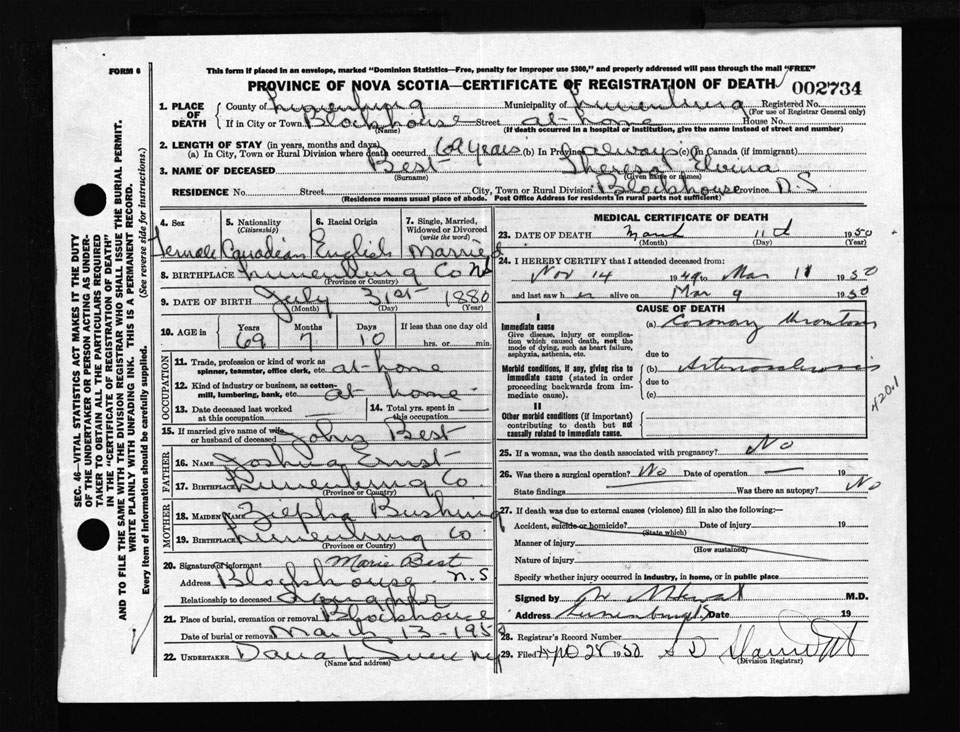 FORM 6
This form if placed in an envelope, marked "Dominion Statistics—Free, penalty for improper use $300," and properly addressed will pass through the mail "FREE"
PROVINCE OF NOVA SCOTIA—CERTIFICATE OF REGISTRATION OF DEATH
002734
1. PLACE OF DEATH
County of Lunenburg Municipality of Lunenburg Registered No.
(For use of Registrar General only)
If in City or Town Blockhouse Street at home House No.
(Name) (If death occurred in a hospital or institution, give the name instead of street and number)
2. LENGTH OF STAY (in years, months and days)
(a) In City, Town or Rural Division where death occurred 69 years (b) In Province always (c) In Canada (if immigrant)
3. NAME OF DECEASED Best Theresa Elvina
(Surname) (Given name or names)
RESIDENCE No. Street City, Town or Rural Division Blockhouse Province N.S
(Residence means usual place of abode. Post Office Address for residents in rural parts not sufficient)
4. Sex
Female
5. Nationality (Citizenship)
Canadian
6. Racial Origin
English
7. Single, Married, Widowed or Divorced (write the word)
Married
8. BIRTHPLACE Lunenburg Co NS
(Province or Country)
9. DATE OF BIRTH July 31st 1880
(Month) (Day) (Year)
10. AGE in Years Months Days If less than one day old
69 7 10 hrs. or min.
OCCUPATION
11. Trade, profession or kind of work as spinner, teamster, office clerk, etc. at-home
12. Kind of industry or business, as cotton-mill, lumbering, bank, etc. at home
13. Date deceased last worked at this occupation —
14. Total yrs. spent in this occupation —
15. If married give name of wife or husband of deceased John Best
FATHER
16. NAME Joshua Ernst
17. BIRTHPLACE Lunenburg Co
(Province or Country)
MOTHER
18. MAIDEN NAME Ziepha Bushing
19. BIRTHPLACE Lunenburg Co
(Province or Country)
20. Signature of informant Marie Best
Address Blockhouse N.S
Relationship to deceased Daughter
21. Place of burial, cremation or removal Blockhouse
Date of burial or removal March 13-1950
22. UNDERTAKER
(Name and address)
MEDICAL CERTIFICATE OF DEATH
23. DATE OF DEATH March 11th 1950
(Month) (Day) (Year)
24. I HEREBY CERTIFY that I attended deceased from:
Nov 14 1949 to Mar 11 1950
and last saw her alive on Mar 9 1950
CAUSE OF DEATH
I
Immediate cause
Give disease, injury or complication which caused death, not the mode of dying, such as heart failure, asphyxia, asthenia, etc.
(a) Coronary thrombosis
due to
Morbid conditions, if any, giving rise to immediate cause (stated in order proceeding backwards from immediate cause).
(b) Arteriosclerosis
due to
(c)
420.1
II
Other morbid conditions (if important) contributing to death but not causally related to immediate cause.
25. If a woman, was the death associated with pregnancy? No
26. Was there a surgical operation? No Date of operation — 19
State findings Was there an autopsy? No
27. If death was due to external causes (violence) fill in also the following:—
Accident, suicide or homicide? Date of injury 19
(State which)
Manner of injury
(How sustained)
Nature of injury
Specify whether injury occurred in industry, in home, or in public place
Signed by M.D.
Address Lunenburg NS Date 19
28. Registrar's Record Number
29. Filed Apr 28 1950
(Division Registrar)
SEC. 46—VITAL STATISTICS ACT MAKES IT THE DUTY
OF THE UNDERTAKER OR PERSON ACTING AS UNDER-
TAKER TO OBTAIN ALL THE PARTICULARS REQUIRED
IN THE "CERTIFICATE OF REGISTRATION OF DEATH"
AND TO FILE THE SAME WITH THE DIVISION REGISTRAR WHO SHALL ISSUE THE BURIAL PERMIT.
WRITE PLAINLY WITH UNFADING INK. THIS IS A PERMANENT RECORD.
Every item of information should be carefully supplied. (See reverse side for instructions.)